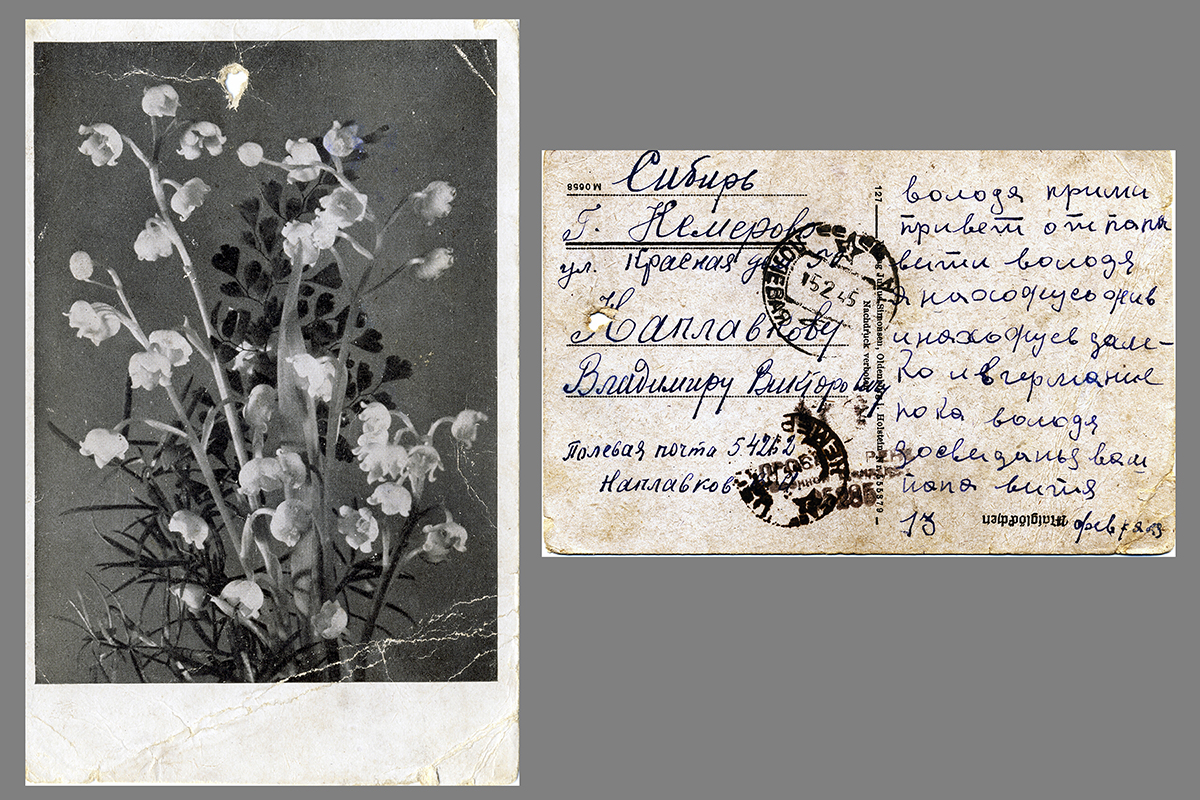 Сибирь
M 0658
Г. Кемерово
ул. Красная
Наплавкову
Владимиру Викторовичу
Полевая почта 54262
Наплавков
15 2 45
КЕМЕР
Julius Simonsen, Oldenburg Holstein
Nachdruck verboten
127
володя прими
привет от папи
вити володя
я нахожусь жив
и нахожусь дале-
ко и в германие
пока володя
досвиданья вам
папа витя
13
Maiglöckchen